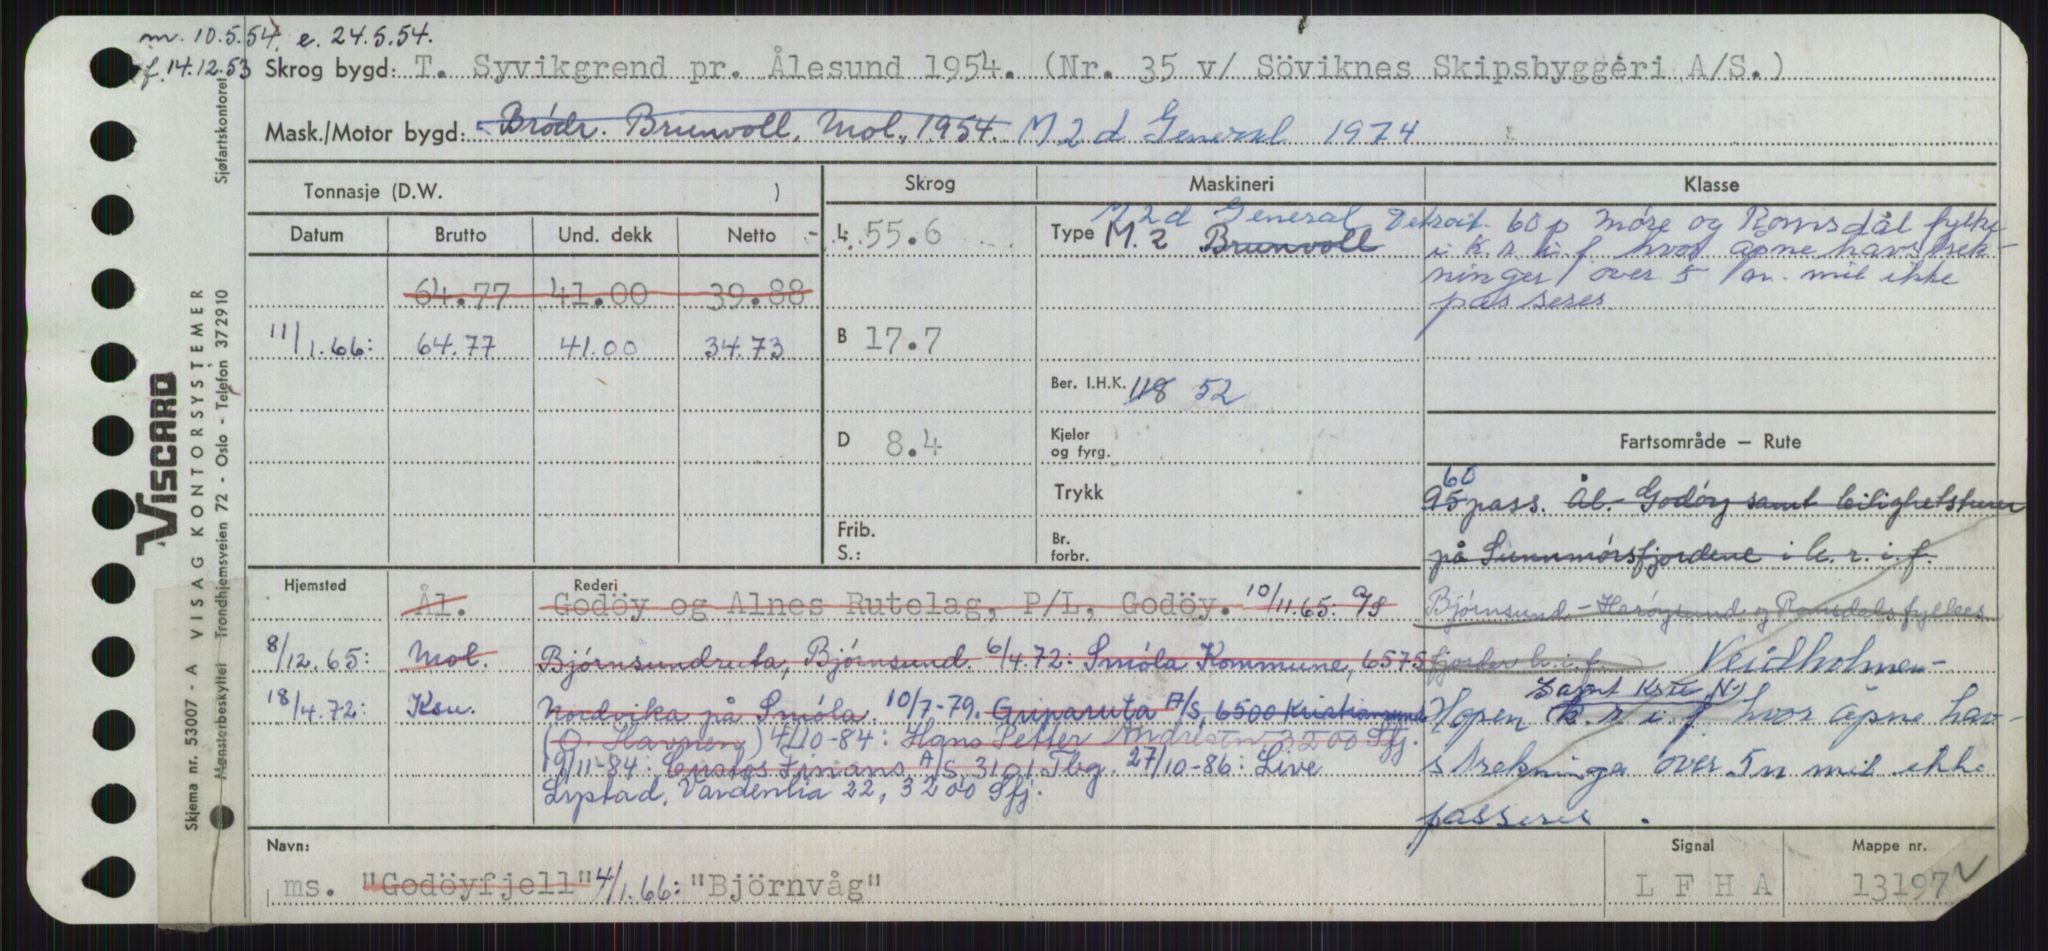 m. 10.5.54, e. 24.5.54.
f. 14.12.53 Skrog bygd: T. Syvikgrend pr. Ålesund 1954. (Nr. 35 v/ Söviknes Skipsbyggeri A/S.)
Mask./Motor bygd: Brödr. Brunvoll, Mol., 1954. M 2 d General 1974
Tonnasje (D.W. ) Skrog Maskineri Klasse
Datum Brutto Und. dekk Netto
64.77 41.00 39.88
11/1.66: 64.77 41.00 34.73
L: 55.6
B 17.7
D 8.4
Frib.
S.:
M 2 d General Detroit.
Type M. 2 Brunvoll
Ber. I.H.K. 118 52
Kjeler
og fyrg.
Trykk
Br.
forbr.
60 p Møre og Romsdal fylke
i k. r. i. f. hvor åpne havstrek-
ninger over 5 n. mil ikke
passeres
Fartsområde – Rute
60
95 pass. Ål.- Godöy samt leilighetsturer
på Sunnmörsfjordene i k. r. i. f.
Björnsund - Haröysund og Romsdals fylkes
fjorder k. i. f. Veidholmen -
samt Kste N.
Hopen k. r. i. f. hvor åpne hav-
strekninger over 5 n mil ikke
passeres.
Hjemsted Rederi
Ål. Godöy og Alnes Rutelag, P/L, Godöy. 10/11.65: 9/8
8/12.65: Mol. Björnsundruta, Björnsund. 6/4.72: Smöla Kommune, 6575
18/4.72: Ksu. Nordvika på Smöla. 10/7-79. Griparuta A/S, 6500 Kristiansund
(O. Havnen) 4/10-84: Hans Petter 3200 Sfj.
19/11-84: Custos Finans A/S, 3101 Tbg. 27/10-86: Live
Lystad, Vardenlia 22, 3200 Sfj.
Navn: Signal Mappe nr.
ms. "Godöyfjell" 4/1.66: "Björnvåg" L F H A 13197
Skjema nr. 53007 - A VISAG KONTORSYSTEMER
VISCARD
Mønsterbeskyttet Trondhjemsveien 72 - Oslo - Telefon 372910
Sjøfartskontoret